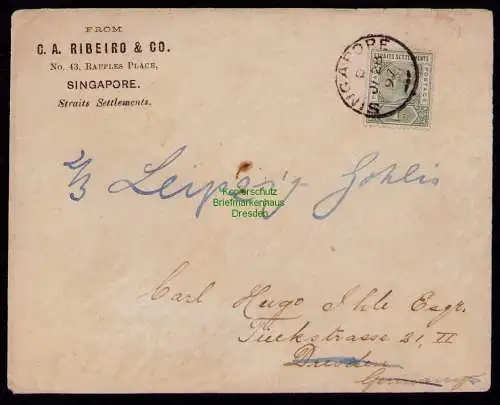 FROM
C. A. RIBEIRO & CO.
No. 43, RAFFLES PLACE,
SINGAPORE.
Straits Settlements.
SINGAPORE
D
JA 28
97
STRAITS SETTLEMENTS
POSTAGE
2/3 Leipzig Gohlis
Kopierschutz
Briefmarkenhaus
Dresden
Carl Hugo Ihle Esqr.
Tieckstrasse 21, II
Dresden
Germany